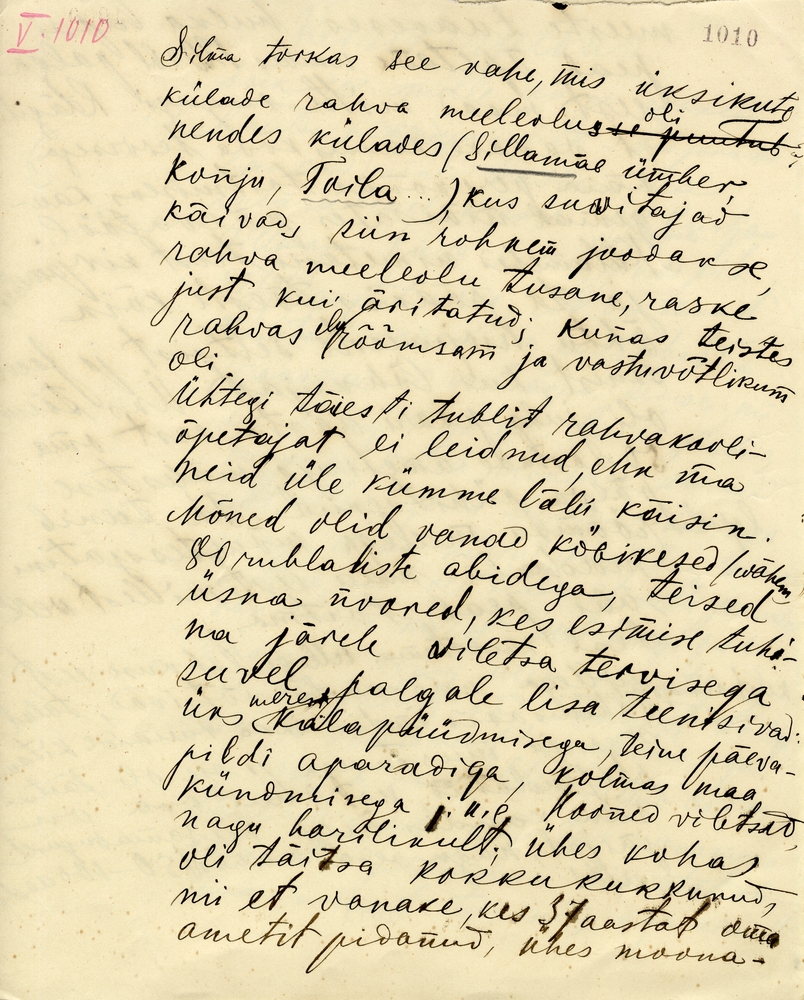 V 1010
1010
Silma torkas see vahe, mis üksikute
külade rahva meeleolus oli
nendes külades (Sillamäe ümber,
Konju, Toila ...), kus suvitajad
käivad, siin rohkem joodakse,
rahva meeleolu tusane, raske
just kui äritatud; kunas teistes
rahvas rõõmsam ja vastuvõtlikum
oli.
Ühtegi täiesti tublit rahvakooli-
õpetajat ei leidnud, ehk ma
neid üle kümme läbi käisin.
Mõned olid vanad köbikesed (wähem
80 rublaliste abidega, teised
üsna noored, kes esimise tuha-
na järele viletsa tervisega
suvel palgale lisa teenisivad:
üks meres kalapüüdmisega, teine päeva-
pildi aparadiga, kolmas maa
kündmisega j.n.e. Hooned viletsad,
nagu harilikult; ühes kohas
oli täitsa kokkukukkunud,
nii et vanake, kes 37 aastat oma
ametit pidanud, ühes moona-